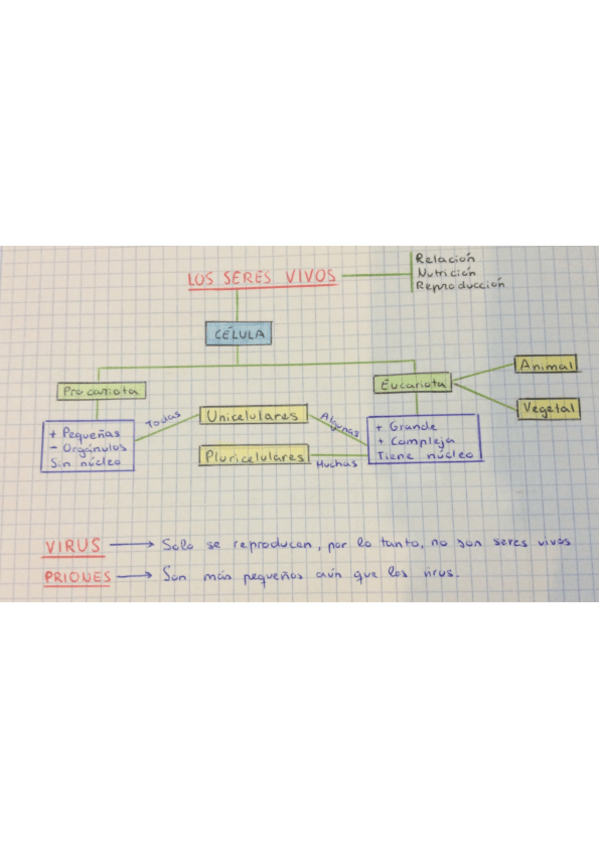 Relación
LOS SERES VIVOS
Nutrición
Reproducción
CÉLULA
Procariota
Eucariota
Animal
Vegetal
+ Pequeñas
- Orgánulos
Sin núcleo
Todas
Unicelulares
Algunas
Pluricelulares
Muchas
+ Grande
+ Compleja
Tiene núcleo
VIRUS → Solo se reproducen, por lo tanto, no son seres vivos
PRIONES → Son más pequeños aún que los virus.